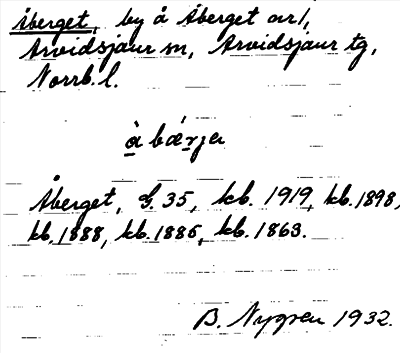 Åberget, by å Åberget nr 1,
Arvidsjaur sn, Arvidsjaur tg,
Norrb. l.
å bærja
Åberget, G. 35, kb. 1919, kb. 1898,
kb. 1888, kb. 1885, kb. 1863.
B. Nygren 1932.